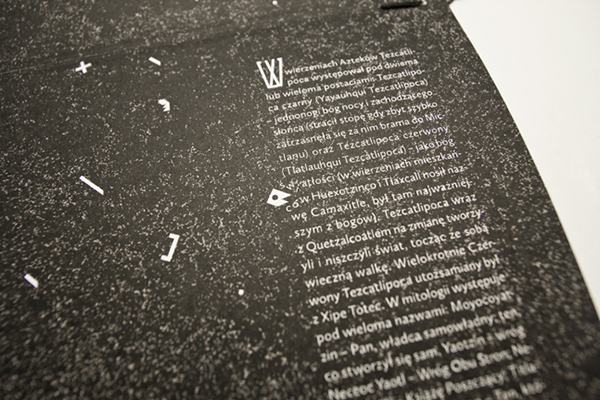 Wierzeniach Azteków Tezcatli-
poca występował pod dwiema
lub wieloma postaciami: Tezcatlipo-
ca czarny (Yayauhqui Tezcatlipoca)
jednonogi bóg nocy i zachodzącego
słońca (stracił stopę gdy zbyt szybko
zatrzasnęła się za nim brama do Mic-
tlanu) oraz Tezcatlipoca czerwony
(Tlatlauhqui Tezcatlipoca) – jako bóg
światłości (w wierzeniach mieszkań-
ców Huexotzinco i Tlaxcali nosił naz-
wę Camaxitle, był tam najważniej-
szym z bogów). Tezcatlipoca wraz
z Quetzalcoatlem na zmianę tworzy-
yli i niszczyli świat, tocząc ze sobą
wieczną walkę. Wielokrotnie Czer-
wony Tezcatlipoca utożsamiany był
z Xipe Totec. W mitologii występuje
pod wieloma nazwami: Moyocoyat-
zin – Pan, władca samowładny; ten
co stworzył się sam, Yaotzin – wróg
Necoc Yaotl – Wróg Obu Stron, Ne-
Książę Poszczący; Titla-